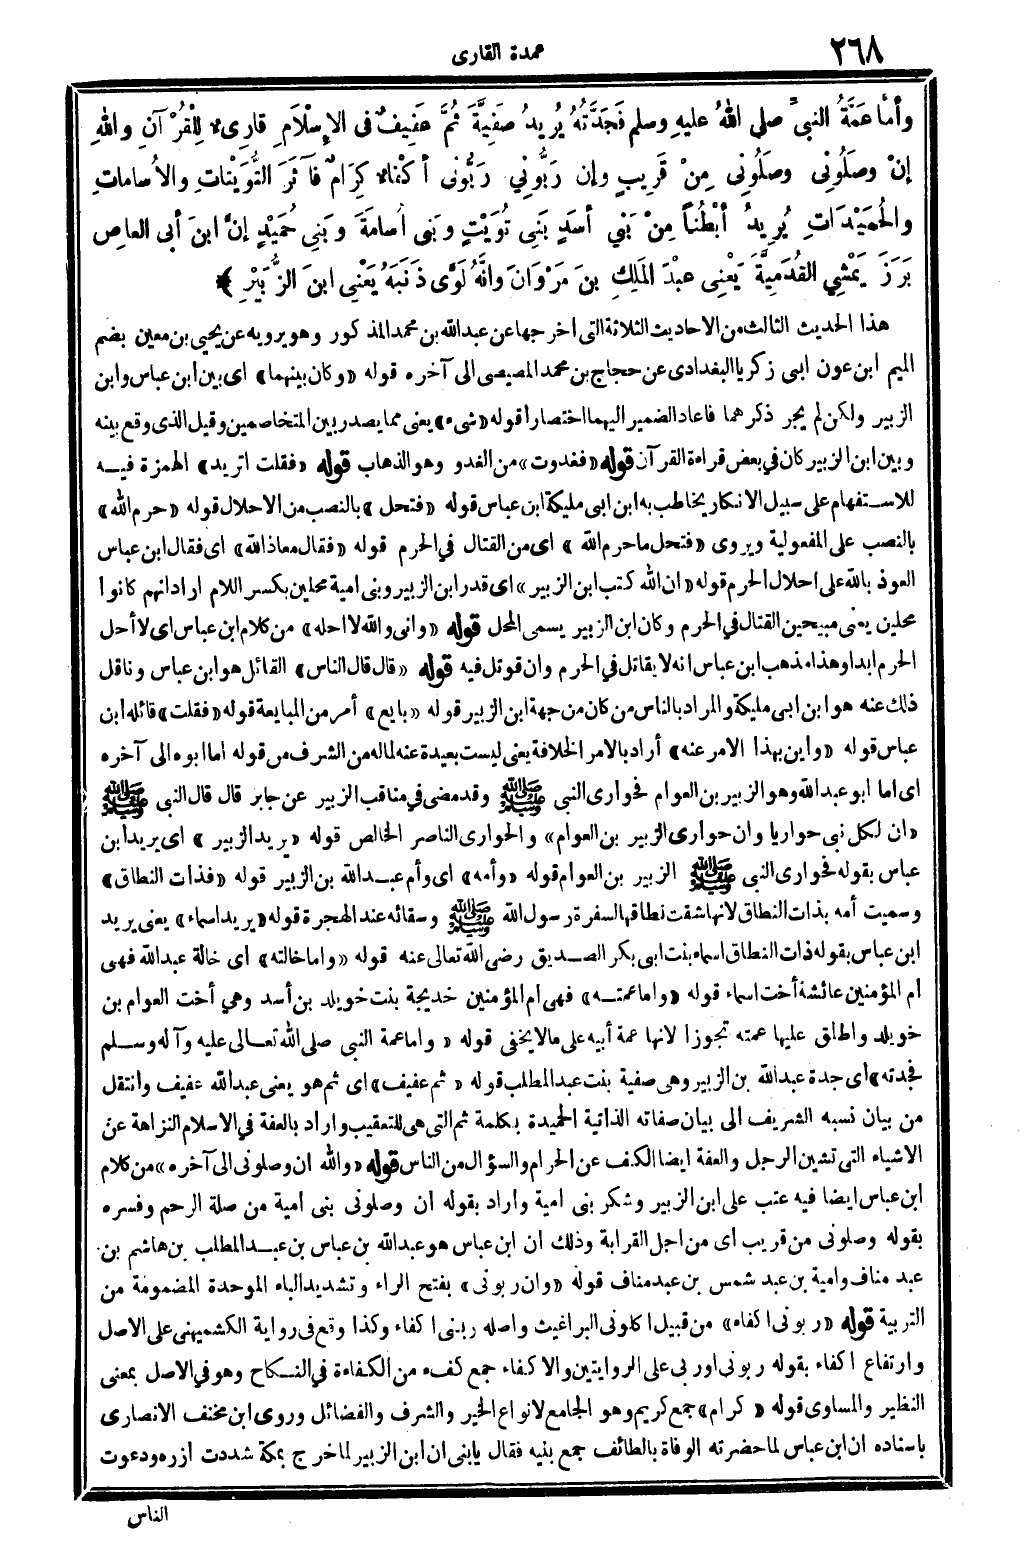 ٢٦٨
عمدة القارى
وأما عَمَّةُ النبيِّ صلى اللهُ عليهِ وسلم فَجَدَّتُهُ يُرِيدُ صَفِيَّةَ ثُمَّ عَفِيفٌ فى الإِسْلاَمِ قارِىءٌ لِلْقُرْآنِ واللهِ
إنْ وصَلُونِى وصَلُونِى مِنْ قَرِيبٍ وإن رَبُّونِي رَبُّونِى أكْفَاءٌ كِرَامٌ فَآثَرَ التُّوَيْتَاتِ والأُسامَاتِ
والْحُمَيْدَاتِ يُرِيدُ أبْطُناً مِنْ بَنِي أسَدٍ بَنِى تُوَيْتٍ وبَنِى أُسامَةَ وبَنِى حُمَيْدٍ إنَّ ابنَ أبى العاصِ
بَرَزَ يَمْشِي القُدَمِيَّةَ يَعْنِى عبْدَ المَلِكِ بنَ مَرْوَانَ وانَّهُ لَوَّى ذَنَبَهُ يَعْنِى ابنَ الزُّبَيْرِ ﴾
هذا الحديث الثالث من الاحاديث الثلاثة التى اخرجها عن عبدالله بن محمد المذكور وهو يرويه عن يحيى بن معين بضم
الميم ابن عون ابى زكريا البغدادى عن حجاج بن محمد المصيصى الى آخره قوله «وكان بينهما» اى بين ابن عباس وابن
الزبير ولكن لم يجر ذكرهما فاعاد الضمير اليهما اختصارا قوله «شىء» يعنى مما يصدر بين المتخاصمين وقيل الذى وقع بينه
وبين ابن الزبير كان في بعض قراءة القرآن قوله «فغدوت» من الغدو وهو الذهاب قوله «فقلت اتريد» الهمزة فيه
للاستفهام على سبيل الانكار يخاطب به ابن ابى مليكة ابن عباس قوله «فتحل» بالنصب من الاحلال قوله «حرم الله»
بالنصب على المفعولية ويروى «فتحل ماحرم الله» اى من القتال في الحرم قوله «فقال معاذ الله» اى فقال ابن عباس
العوذ بالله على احلال الحرم قوله «ان الله كتب ابن الزبير» اى قدر ابن الزبير وبنى امية محلين بكسر اللام اراد انهم كانوا
محلين يعنى مبيحين القتال في الحرم وكان ابن الزبير يسمى المحل قوله «وانى والله لا احله» من كلام ابن عباس اى لا أحل
الحرم ابدا وهذا مذهب ابن عباس انه لا يقاتل في الحرم وان قوتل فيه قوله «قال قال الناس» القائل هو ابن عباس وناقل
ذلك عنه هو ابن ابى مليكة والمراد بالناس من كان من جهة ابن الزبير قوله «بايع» أمر من المبايعة قوله «فقلت» قائله ابن
عباس قوله «واين بهذا الامر عنه» أراد بالامر الخلافة يعنى ليست بعيدة عنه لما له من الشرف من قوله اما ابوه الى آخره
اى اما ابو عبدالله وهو الزبير بن العوام فحوارى النبى ﷺ وقد مضى في مناقب الزبير عن جابر قال قال النبى ﷺ
«ان لكل نبى حواريا وان حوارى الزبير بن العوام» والحوارى الناصر الخالص قوله «يريد الزبير» اى يريد ابن
عباس بقوله فحوارى النبى ﷺ الزبير بن العوام قوله «وأمه» اى وأم عبدالله بن الزبير قوله «فذات النطاق»
وسميت أمه بذات النطاق لانها شقت نطاقها لسفرة رسول الله ﷺ وسقائه عند الهجرة قوله «يريد اسماء» يعنى يريد
ابن عباس بقوله ذات النطاق اسماء بنت ابى بكر الصديق رضى الله تعالى عنه قوله «واما خالته» اى خالة عبدالله فهى
ام المؤمنين عائشة أخت اسماء قوله «واما عمته» فهى ام المؤمنين خديجة بنت خويلد بن أسد وهي أخت العوام بن
خويلد واطلق عليها عمته تجوزا لانها عمة أبيه على مالا يخفى قوله «واما عمة النبى صلى الله تعالى عليه وآله وسلم
فجدته» اى جدة عبدالله بن الزبير وهى صفية بنت عبد المطلب قوله «ثم عفيف» اى ثم هو يعنى عبدالله عفيف وانتقل
من بيان نسبه الشريف الى بيان صفاته الذاتية الحميدة بكلمة ثم التى هى للتعقيب واراد بالعفة في الاسلام النزاهة عن
الاشياء التى تشين الرجل والعفة ايضا الكف عن الحرام والسؤال من الناس قوله «والله ان وصلونى الى آخره» من كلام
ابن عباس ايضا فيه عتب على ابن الزبير وشكر بنى امية واراد بقوله ان وصلونى بنى امية من صلة الرحم وفسره
بقوله وصلونى من قريب اى من اجل القرابة وذلك ان ابن عباس هو عبدالله بن عباس بن عبد المطلب بن هاشم بن
عبد مناف وامية بن عبد شمس بن عبد مناف قوله «وان ربونى» بفتح الراء وتشديد الباء الموحدة المضمومة من
التربية قوله «ربونى اكفاء» من قبيل اكلونى البراغيث واصله ربنى اكفاء وكذا وقع فى رواية الكشميهنى على الاصل
وارتفاع اكفاء بقوله ربونى اوربنى على الروايتين والاكفاء جمع كفء من الكفاءة في النكاح وهو في الاصل بمعنى
النظير والمساوى قوله «كرام» جمع كريم وهو الجامع لانواع الخير والشرف والفضائل وروى ابن مخنف الانصارى
باسناده ان ابن عباس لما حضرته الوفاة بالطائف جمع بنيه فقال يابنى ان ابن الزبير لما خرج بمكة شددت ازره ودعوت
الناس